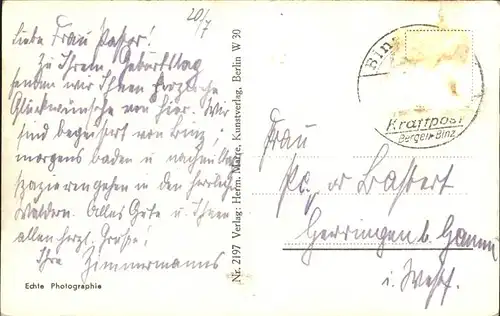 20/7
Liebe Frau Pastor!
Zu Ihrem Geburtstag
senden wir Ihnen herzliche
Glückwünsche von hier. Wir
sind begeistert von Binz,
morgens baden u nachm.
spazierengehen in den herrlich
Wäldern. Alles Gute u Ihnen
allen herzl. Grüße!
Ihre Zimmermanns
Echte Photographie
Nr. 2197 Verlag: Herm. Marge, Kunstverlag, Berlin W 30
Bin
Kraftpost
Bergen-Binz
Frau
Herringen b. Hamm
i. Westf.